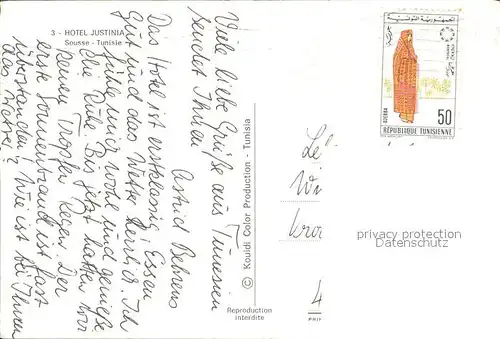 3 - HOTEL JUSTINIA
Sousse - Tunisie
Viele liebe Grüße aus Tunesien
sendet Ihnen
Astrid Behrens
Das Hotel ist erstklassig, Essen
gut und das Wetter herrlich. Ich
fühle mich wohl und genieße
die Ruhe. Bis jetzt hatten wir
keinen Tropfen Regen. Der
erste Sonnenbrand ist fast
überstanden. Wie ist bei Ihnen
das Wetter?
© Kouidi Color Production - Tunisia
Reproduction
interdite
الجمهورية التونسية
GUERBA
50
RÉPUBLIQUE TUNISIENNE
privacy protection
Datenschutz